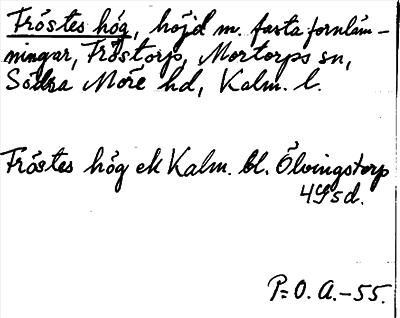 Fröstes hög, höjd m. fasta fornläm-
ningar, Fröstorp, Mortorps sn,
Södra Möre hd, Kalm. l.
Fröstes hög ek Kalm. bl. Ölvingstorp
4G sd.
P:O.A.-55.